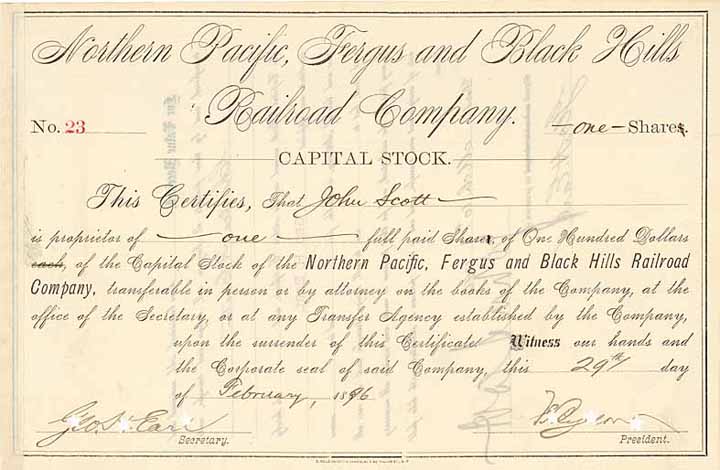 Northern Pacific, Fergus and Black Hills
Railroad Company.
No. 23
one Share
CAPITAL STOCK.
This Certifies, That John Scott
is proprietor of one full paid Share, of One Hundred Dollars
each, of the Capital Stock of the Northern Pacific, Fergus and Black Hills Railroad
Company, transferable in person or by attorney on the books of the Company, at the
office of the Secretary, or at any Transfer Agency established by the Company,
upon the surrender of this Certificate Witness our hands and
the Corporate seal of said Company, this 29th day
of February, 1896
Geo. H. Earl
Secretary.
President.